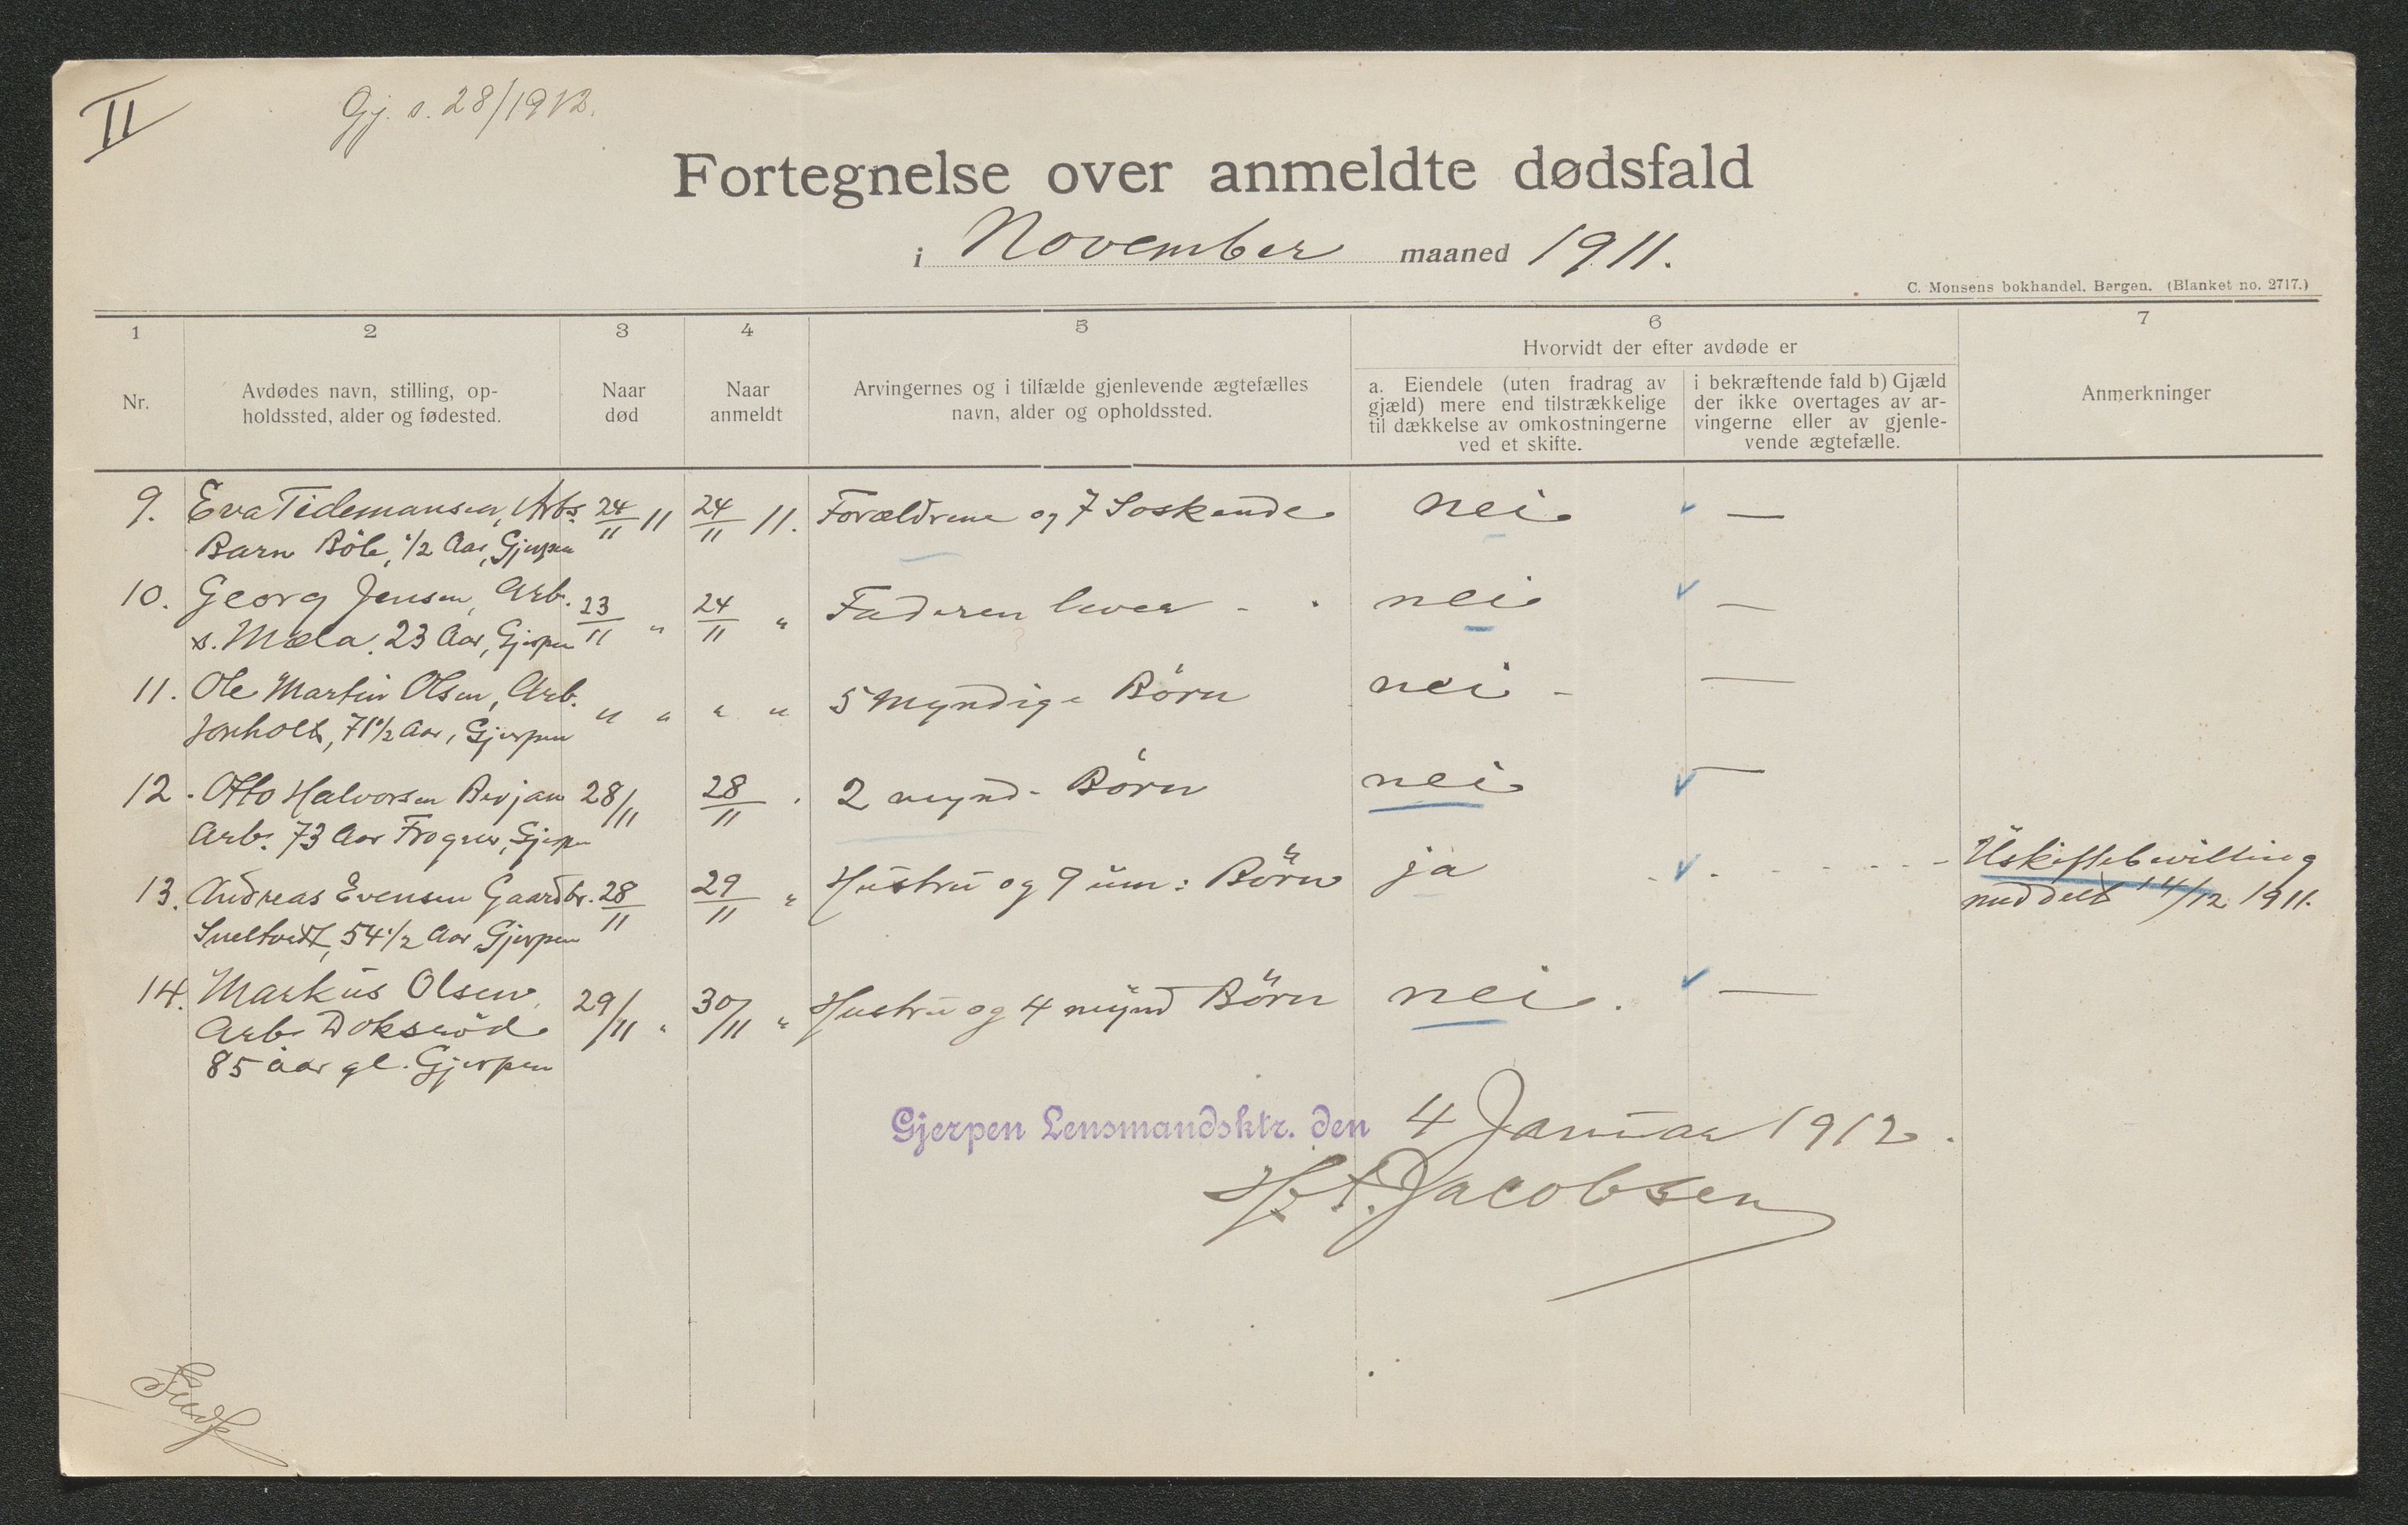 II
Gj. s. 28/1912.
Fortegnelse over anmeldte dødsfald
i November maaned 1911.
C. Monsens bokhandel. Bergen. (Blanket no. 2717.)
1 2 3 4 5 6 7
Nr.
Avdødes navn, stilling, op-
holdssted, alder og fødested.
Naar
død
Naar
anmeldt
Arvingernes og i tilfælde gjenlevende ægtefælles
navn, alder og opholdssted.
Hvorvidt der efter avdøde er
a. Eiendele (uten fradrag av
gjæld) mere end tilstrækkelige
til dækkelse av omkostningerne
ved et skifte.
i bekræftende fald b) Gjæld
der ikke overtages av ar-
vingerne eller av gjenle-
vende ægtefælle.
Anmerkninger
9. Eva Tidemansen, Arbs. 24/11 11 24/11 11. Forældrene og 7 Søskende nei —
Barn Böle, 1/2 Aar, Gjerpen
10. Georg Jensen, Arb. 23/11 " 24/11 " Faderen lever - nei —
s. Mæla. 23 Aar, Gjerpen
11. Ole Martin Olsen, Arb. " " " " 5 myndige Börn nei - —
Jonholt, 71 1/2 Aar, Gjerpen
12. Otto Halvorsen 28/11 28/11 2 mynd. Börn nei —
Arb. 73 Aar Frogner, Gjerpen
13. Andreas Evensen Gaardbr. 28/11 29/11 " Hustru og 9 um: Börn ja - Uskiftebevilling
Sneltvedt, 54 1/2 Aar, Gjerpen
meddelt 14/12 1911.
14. Markus Olsen 29/11 " 30/11 " Hustru og 4 mynd Börn nei. —
Arb. Doksröd
85 aar gl. Gjerpen
Gjerpen Lensmandsktr. den 4 Januar 1912.
Jacobsen